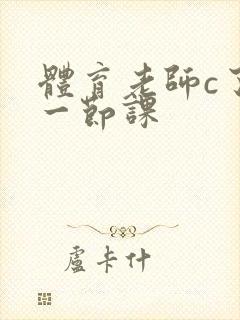 體育老師c了
一節課
盧卡什